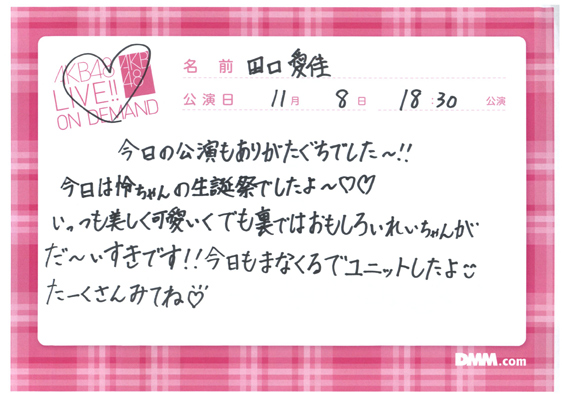 AKB48
LIVE!!
ON DEMAND
AKB
48
名前 田口愛佳
公演日 11月 8日 18:30 公演
今日の公演もありがたぐちでした〜!!
今日は怜ちゃんの生誕祭でしたよ〜♡♡
いっつも美しく可愛いくでも裏ではおもしろいれいちゃんが
だ〜いすきです!!今日もまなくるでユニットしたよ
たーくさんみてね♡
DMM.com